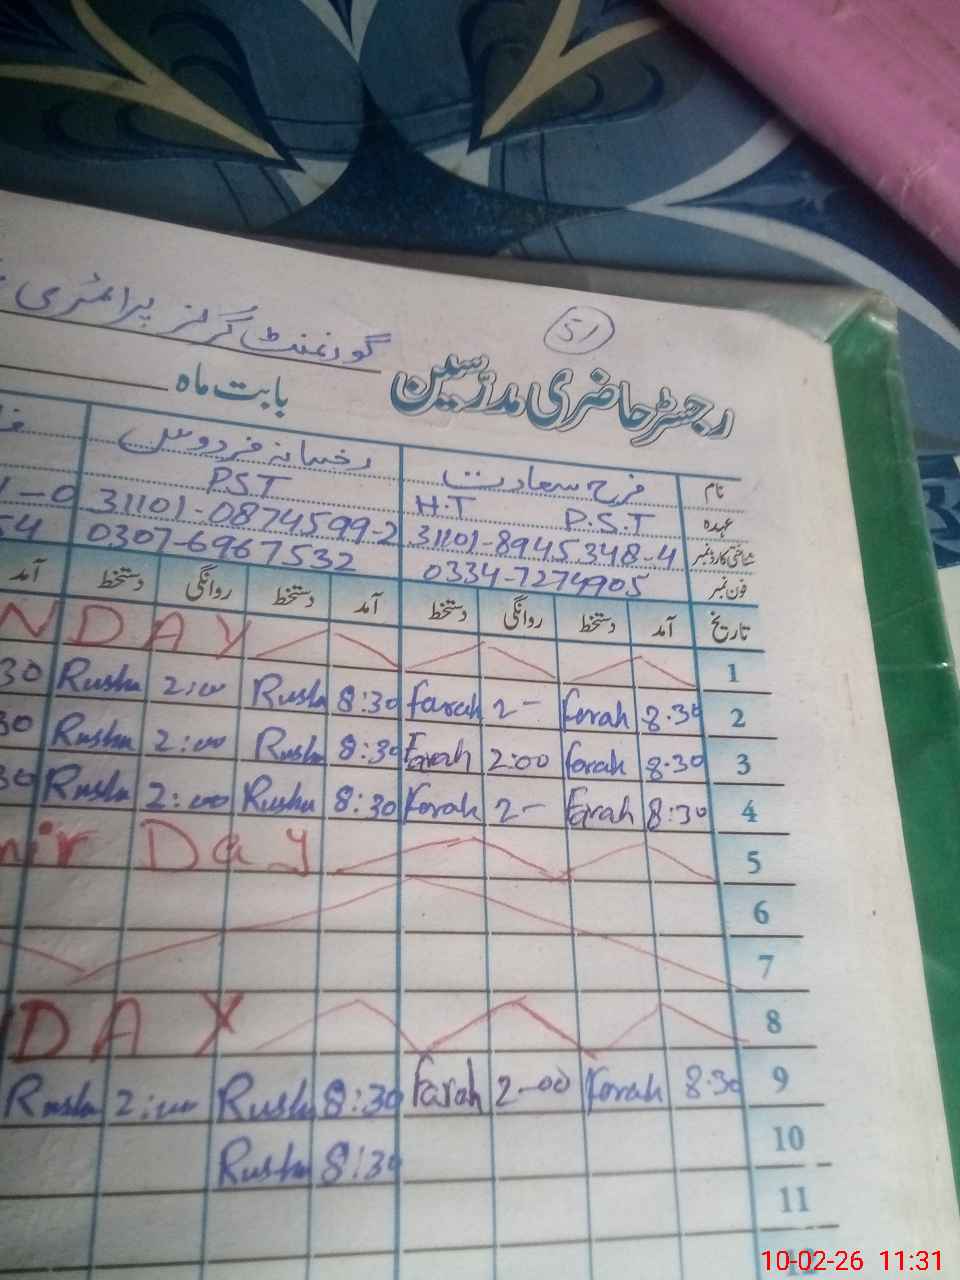 51
گورنمنٹ گرلز پرائمری
رجسٹر حاضری مدرسین بابت ماہ
نام فرح سعادت رخسانہ فردوس
عہدہ H.T P.S.T PST
شناختی کارڈ نمبر 31101-8945348-4 31101-0874599-2
فون نمبر 0334-7274905 0307-6967532 54
تاریخ آمد دستخط روانگی دستخط آمد دستخط روانگی دستخط آمد
1 NDAY
2 8.30 Farah 2- Farah 8:30 Rushu 2:00 Rushu 30
3 8.30 Farah 2:00 Farah 8:30 Rushu 2:00 Rushu 30
4 8:30 Farah 2- Farah 8:30 Rushu 2:00 Rushu 30
5 mir Day
6
7
8 DAY
9 8.30 Farah 2-00 Farah 8:30 Rushu 2:00 Rushu
10 8:30 Rushu
11
12
10-02-26 11:31